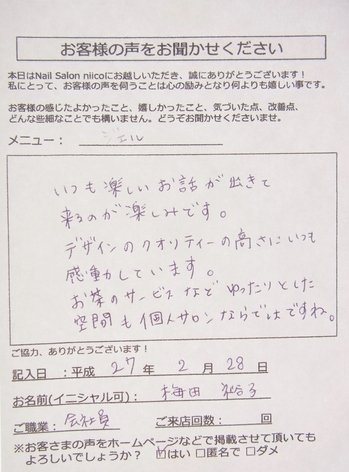 お客様の声をお聞かせください
本日はNail Salon niicoにお越しいただき、誠にありがとうございます！
私にとって、お客様の声を伺うことは心の励みとなり何よりも嬉しい事です。
お客様の感じたよかったこと、嬉しかったこと、気づいた点、改善点、
どんな些細なことでも構いません。どうぞお聞かせくださいませ。
メニュー： ジェル
いつも楽しいお話が出きて
来るのが楽しみです。
デザインのクオリティーの高さにいつも
感動しています。
お茶のサービスなど ゆったりとした
空間も個人サロンならではですね。
ご協力、ありがとうございます！
記入日 ：平成 27 年 2 月 28 日
お名前(イニシャル可)： 梅田
ご職業： 会社員 ご来店回数： 回
※お客さまの声をホームページなどで掲載させて頂いても
よろしいでしょうか？ ☑はい □匿名で □ダメ